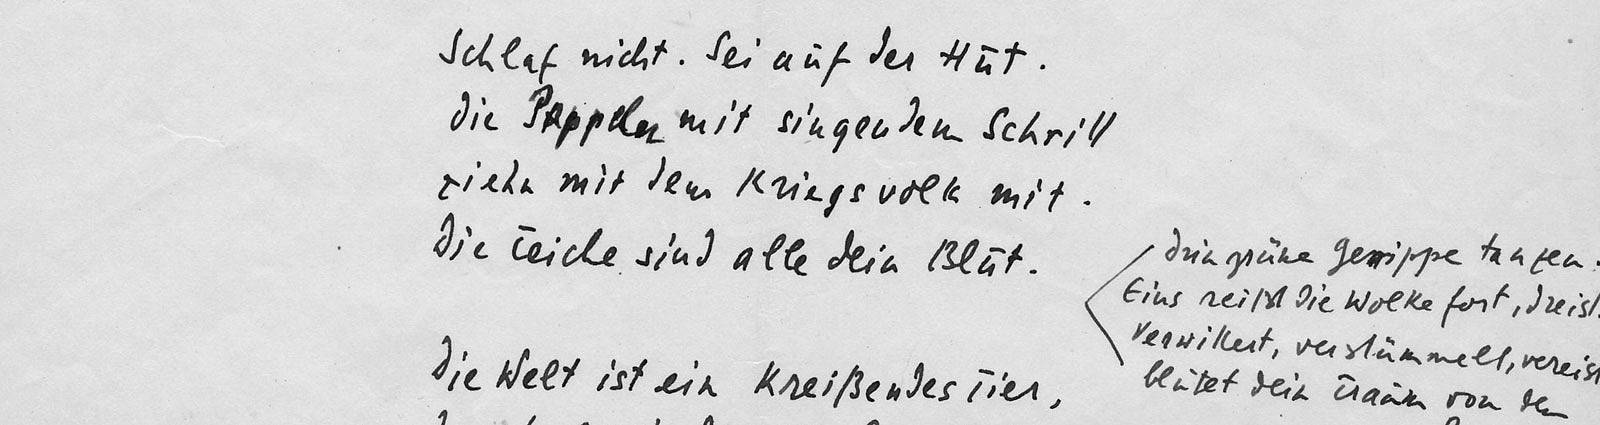 Schlaf nicht. Sei auf der Hut.
Die Pappeln mit singendem Schrill
ziehn mit dem Kriegsvolk mit.
Die Teiche sind alle dein Blut.
Drin grüne Gerippe tanzen.
Eins reißt die Wolke fort, dreist.
Verwittert, verstümmelt, vereist
blutet dein Traum von den
Die Welt ist ein kreißendes Tier,